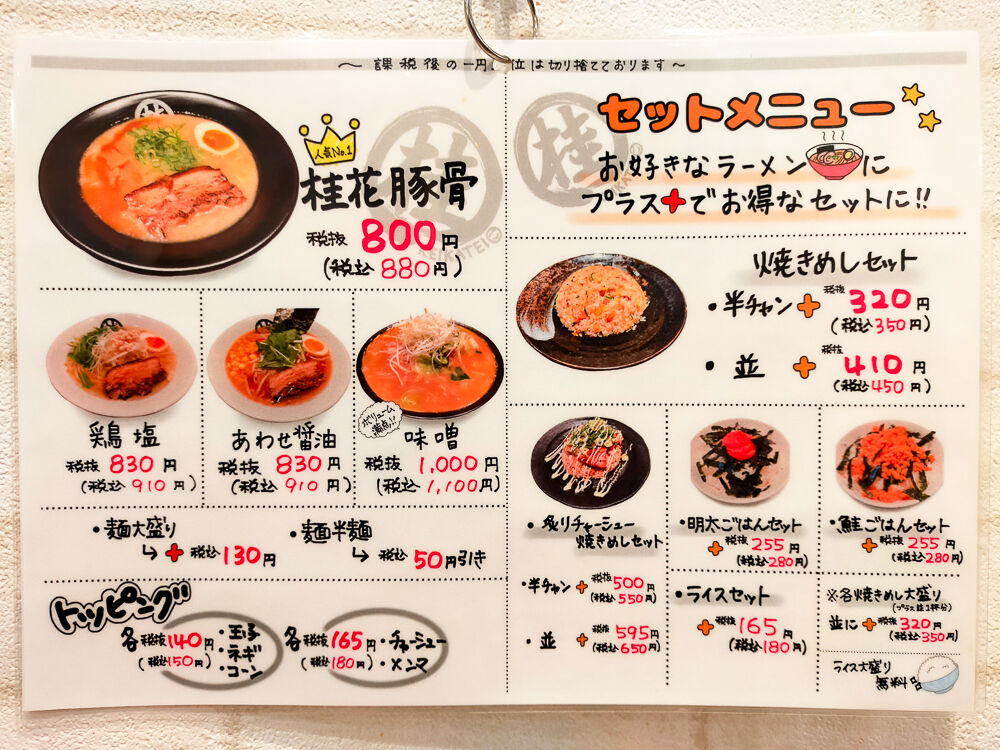 ～ 課税後の一円単位は切り捨てております～
桂
人気No.1
桂花豚骨
税抜 800円
(税込 880円)
KEIKATEI
鶏塩
税抜 830円
(税込 910円)
あわせ醤油
税抜 830円
(税込 910円)
ボリューム
満点!!
味噌
税抜 1,000円
(税込 1,100円)
・麺大盛り
↳ + 税込 130円
・麺半麺
↳ 税込 50円引き
トッピング
各 税抜 140円
(税込 150円)
・玉子
・ネギ
・コーン
各 税抜 165円
(税込 180円)
・チャーシュー
・メンマ
桂
セットメニュー
お好きなラーメンに
プラス+でお得なセットに!!
焼きめしセット
・半チャン + 税抜 320円
(税込 350円)
・並 + 税抜 410円
(税込 450円)
・炙りチャーシュー
焼きめしセット
・半チャン + 税抜 500円
(税込 550円)
・並 + 税抜 595円
(税込 650円)
・明太ごはんセット
+ 税抜 255円
(税込 280円)
・鮭ごはんセット
+ 税抜 255円
(税込 280円)
・ライスセット
+ 税抜 165円
(税込 180円)
※各焼きめし大盛り
(プラス並1杯分)
並に + 税抜 320円
(税込 350円)
ライス大盛り
無料